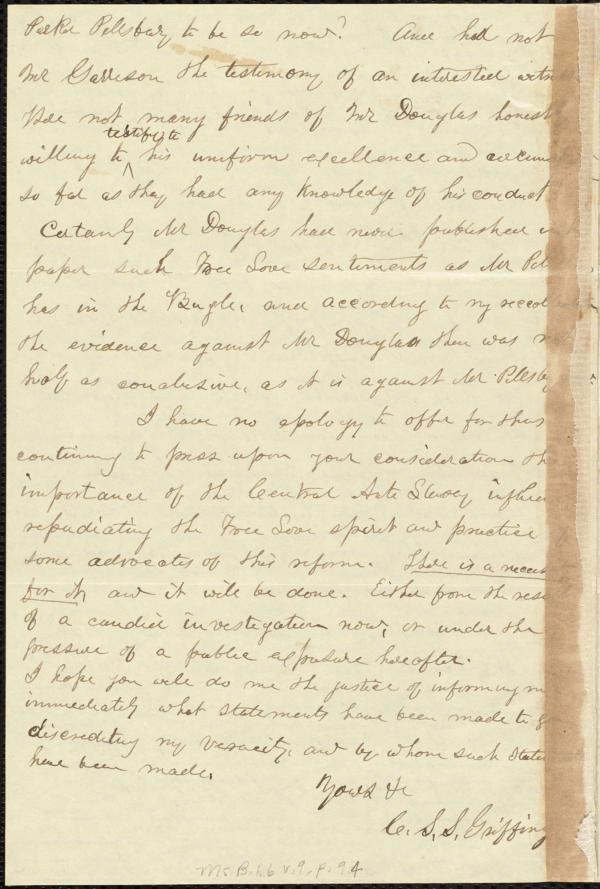 Parker Pillsbury to be so now? And had not
Mr Garrison the testimony of an interested witn
Were not many friends of Mr Douglas honest
testify to
willing to ^ his uniform excellence and
so far as they had any knowledge of his conduct
Certainly Mr Douglas had never published in
paper such Free Love sentiments as Mr Pil
has in the Bugle, and according to my recol
the evidence against Mr Douglas there was
half as conclusive, as it is against Mr. Pillsby
I have no apology to offer for thus
continuing to press upon your consideration th
importance of the Central Anti Slavery influen
repudiating the Free Love spirit and practice
some advocates of this reform. There is a necess
for it, and it will be done. Either from the res
of a candid investigation now, or under the
pressure of a public exposure hereafter.
I hope you will do me the justice of informing m
immediately what statements have been made to
discrediting my veracity, and by whom such state
have been made.
Yours &c
C. S. S. Griffing
Ms B.1.6 v.9, p.94